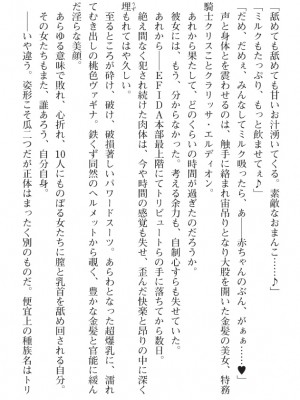 「舐めても舐めても甘いお汁湧いてくる。素敵なおまんこ……♪」
「ミルクもたっぷり、もっと飲ませてぇ♪」
「だめ、だめぇ、みんなしてミルク吸ったら、あ――赤ちゃんのぶん、がぁぁ……♥」
声と身体とを震わせるのは、触手に絡まり宙吊りとなり大股を開いた金髪の美女、特務
騎士クリスことクラリッサ・エルディオン。
あれから果たして、どのくらいの時間が過ぎたのだろうか
彼女には、もう、分からなかった。考える余力も、自制心すらも失せていた。
あれから――ＥＦＩＤＡ本部最上階にてトリビュートらの手に落ちてから数日。
絶え間なく見され続けた肉体は、今や時間の感覚も失せ、歪んだ快楽と昂りの中に深く
埋もれてはや久しい。
至るところが砕け、破け、破損著しいパワードスーツ。あらわとなった超爆乳に、濡れ
てむき出しの桃色ヴァギナ。鉄くず同然のヘルメットから覗く、豊かな金髪と官能に緩ん
だ淫らな美顔。
あらゆる意味で敗れ、心折れ、10人にものぼる女たちに膣と乳首を舐め回される自分。
その女たちもまた、誰あろう、自分自身。
――いや違う。姿形こそ瓜二つだが正体はまったく別のものだ。便宜上の種族名はトリ